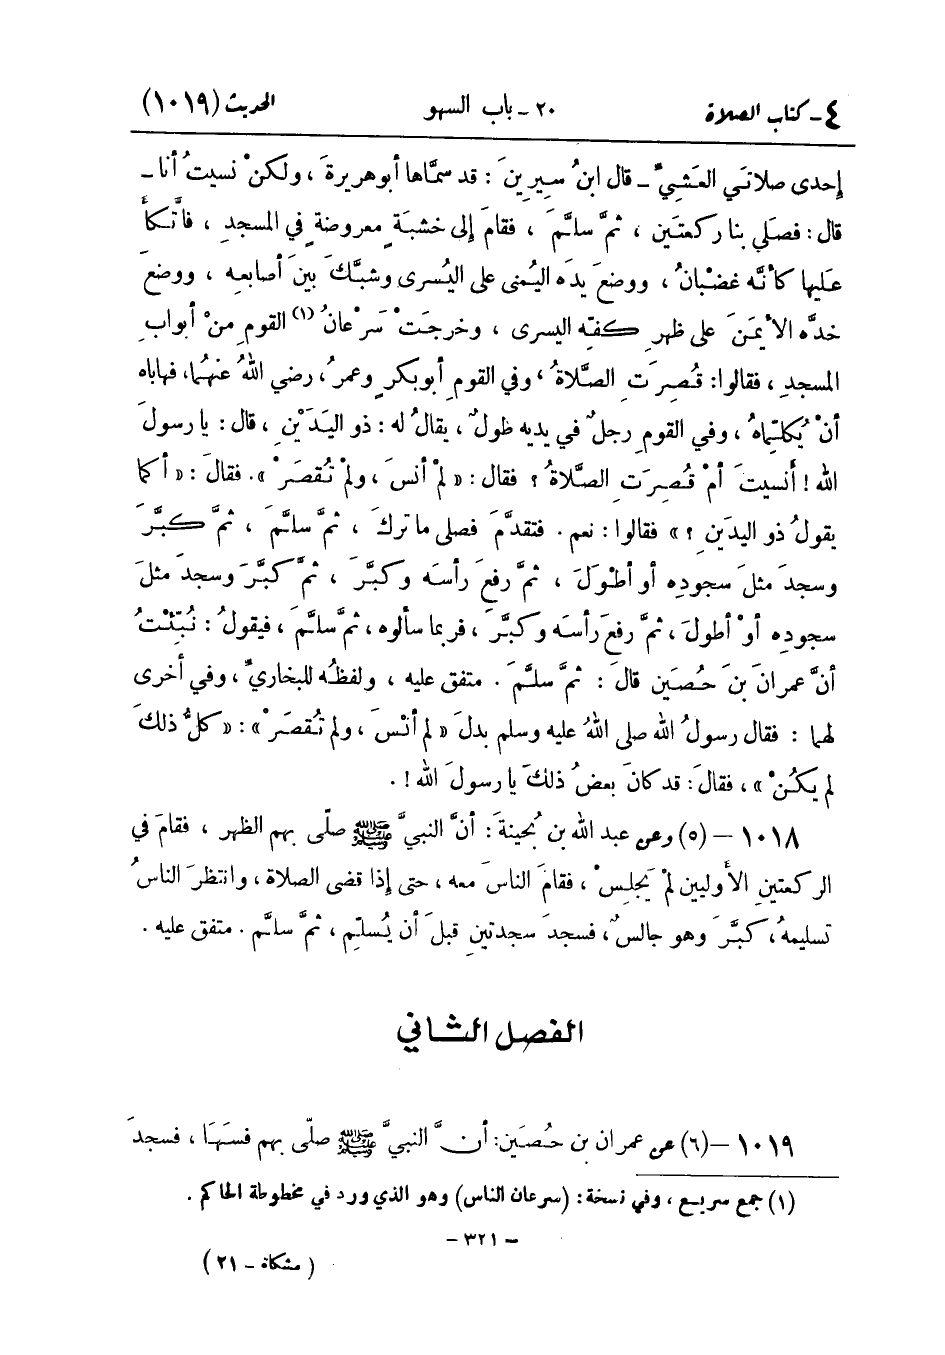 ٤ - كتاب الصلاة ٢٠ - باب السهو الحديث (١٠١٩)
إحدى صلاتَي العَشيِّ - قال ابنُ سيرينَ : قد سمَّاها أبو هريرةَ ، ولكنْ نسيتُ أنا -
قال : فصَلى بنا ركعتَينِ ، ثمَّ سلَّمَ ، فقامَ إلى خشبَةٍ معروضةٍ في المسجدِ ، فاتَّكأَ
عليها كأنَّه غضْبانُ ، ووضعَ يدَه اليُمنى على اليُسرى وشبَّكَ بينَ أصابعِه ، ووضعَ
خدَّه الأيْمنَ على ظهرِ كفِّه اليسرى ، وخرجَتْ سَرْعانُ (١) القومِ منْ أبوابِ
المسجدِ ، فقالوا : قُصِرَتِ الصَّلاةُ ، وفي القومِ أبو بكرٍ وعمرُ ، رضي اللهُ عنهُما، فهاباه
أنْ يُكلِّماهُ ، وفي القومِ رجلٌ في يديه طولٌ ، يقالُ له : ذو اليَدَيْنِ ، قال : يا رسولَ
الله ! أنسيتَ أمْ قُصِرَتِ الصَّلاةُ ؟ فقال : « لمْ أنسَ ، ولمْ تُقصَرْ » . فقالَ : « أكما
يقولُ ذو اليدَينِ ؟ » فقالوا : نعم . فتقدَّمَ فصلى ما تركَ ، ثمَّ سلَّمَ ، ثمَّ كبَّرَ
وسجدَ مثلَ سجودِه أو أطوَلَ ، ثمَّ رفعَ رأسَه وكبَّرَ ، ثمَّ كبَّرَ وسجدَ مثلَ
سجودِه أوْ أطولَ ، ثمَّ رفعَ رأسَه وكبَّرَ ، فربما سألوه ، ثمَّ سلَّمَ ، فيقولُ : نُبِّئْتُ
أنَّ عمرانَ بنَ حُصَينٍ قالَ : ثمَّ سلَّمَ . متفق عليه ، ولفظُه للبخاريِّ ، وفي أخرى
لهما : فقال رسولُ الله صلى اللهُ عليه وسلم بدلَ « لم أنْسَ ، ولم تُقصَرْ » : « كلُّ ذلكَ
لم يكُنْ » ، فقالَ : قد كانَ بعضُ ذلكَ يا رسولَ الله ! .
١٠١٨ - (٥) وعن عبد الله بن بُحينةَ : أنَّ النبيَّ ﷺ صلَّى بهم الظهر ، فقامَ في
الركعتينِ الأُوليينِ لمْ يَجلِسْ ، فقامَ الناسَ معه ، حتى إذا قضى الصلاة ، وانتظرَ الناسُ
تسليمهُ ، كبَّرَ وهو جالسٌ ، فسجدَ سجدتينِ قبلَ أن يُسلِّم ، ثمَّ سلَّم . متفق عليه .
الفصل الثاني
١٠١٩ - (٦) عن عمران بن حُصَين: أنَّ النبيَّ ﷺ صلَّى بهم فسَهَا ، فسجدَ
(١) جمع سريع ، وفي نسخة : (سرعان الناس) وهو الذي ورد في مخطوطة الحاكم .
- ٣٢١ -
( مشكاة - ٢١ )